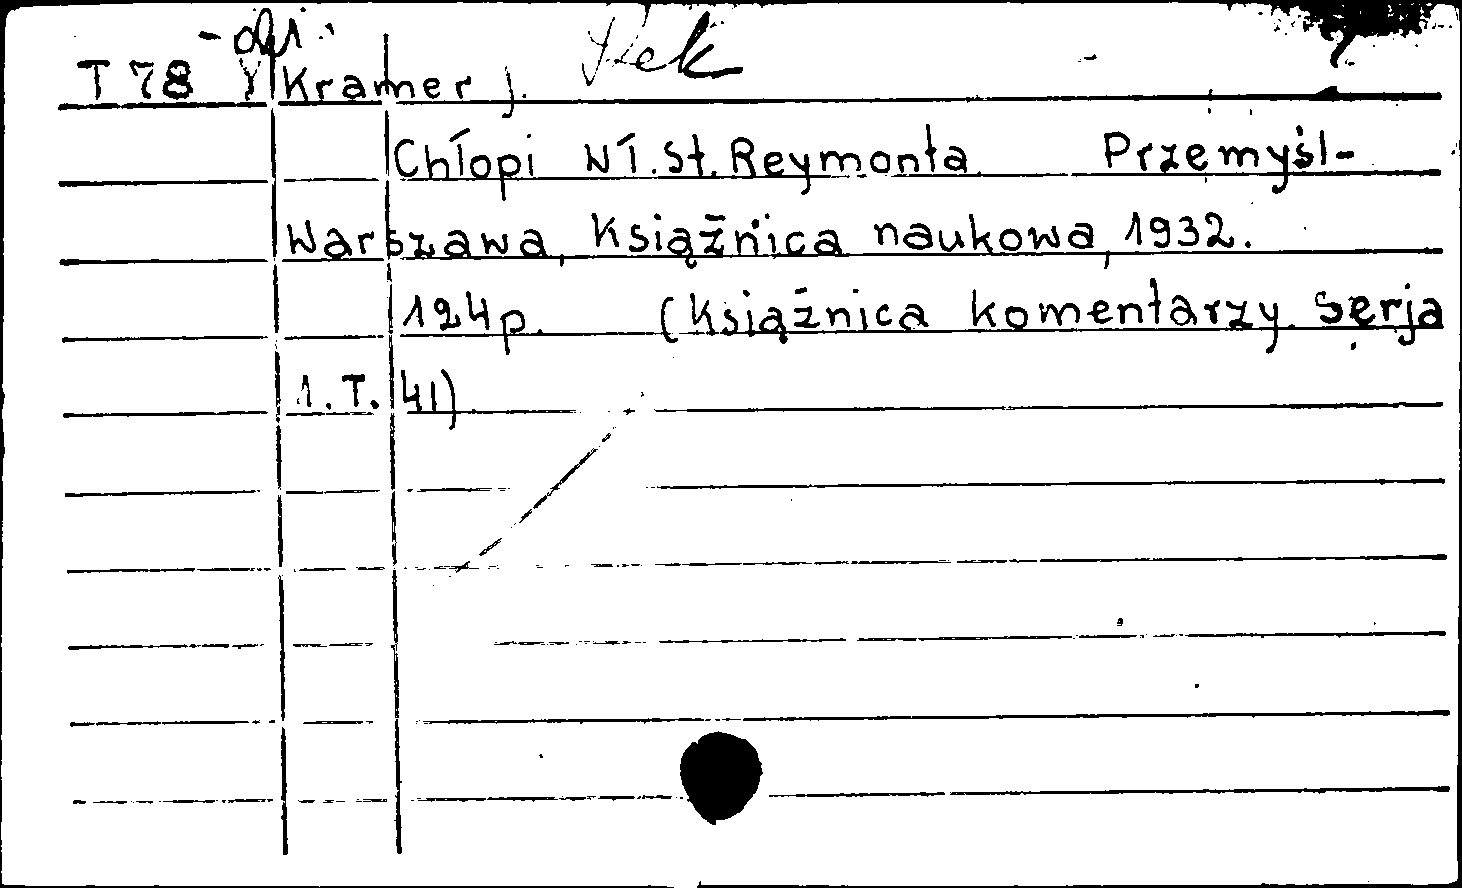 T 78 Y Kramer J.
Chłopi Wł. St. Reymonta Przemyśl-
Warszawa, Książnica naukowa, 1932.
124p. (Książnica komentarzy serja
1. T. 41)